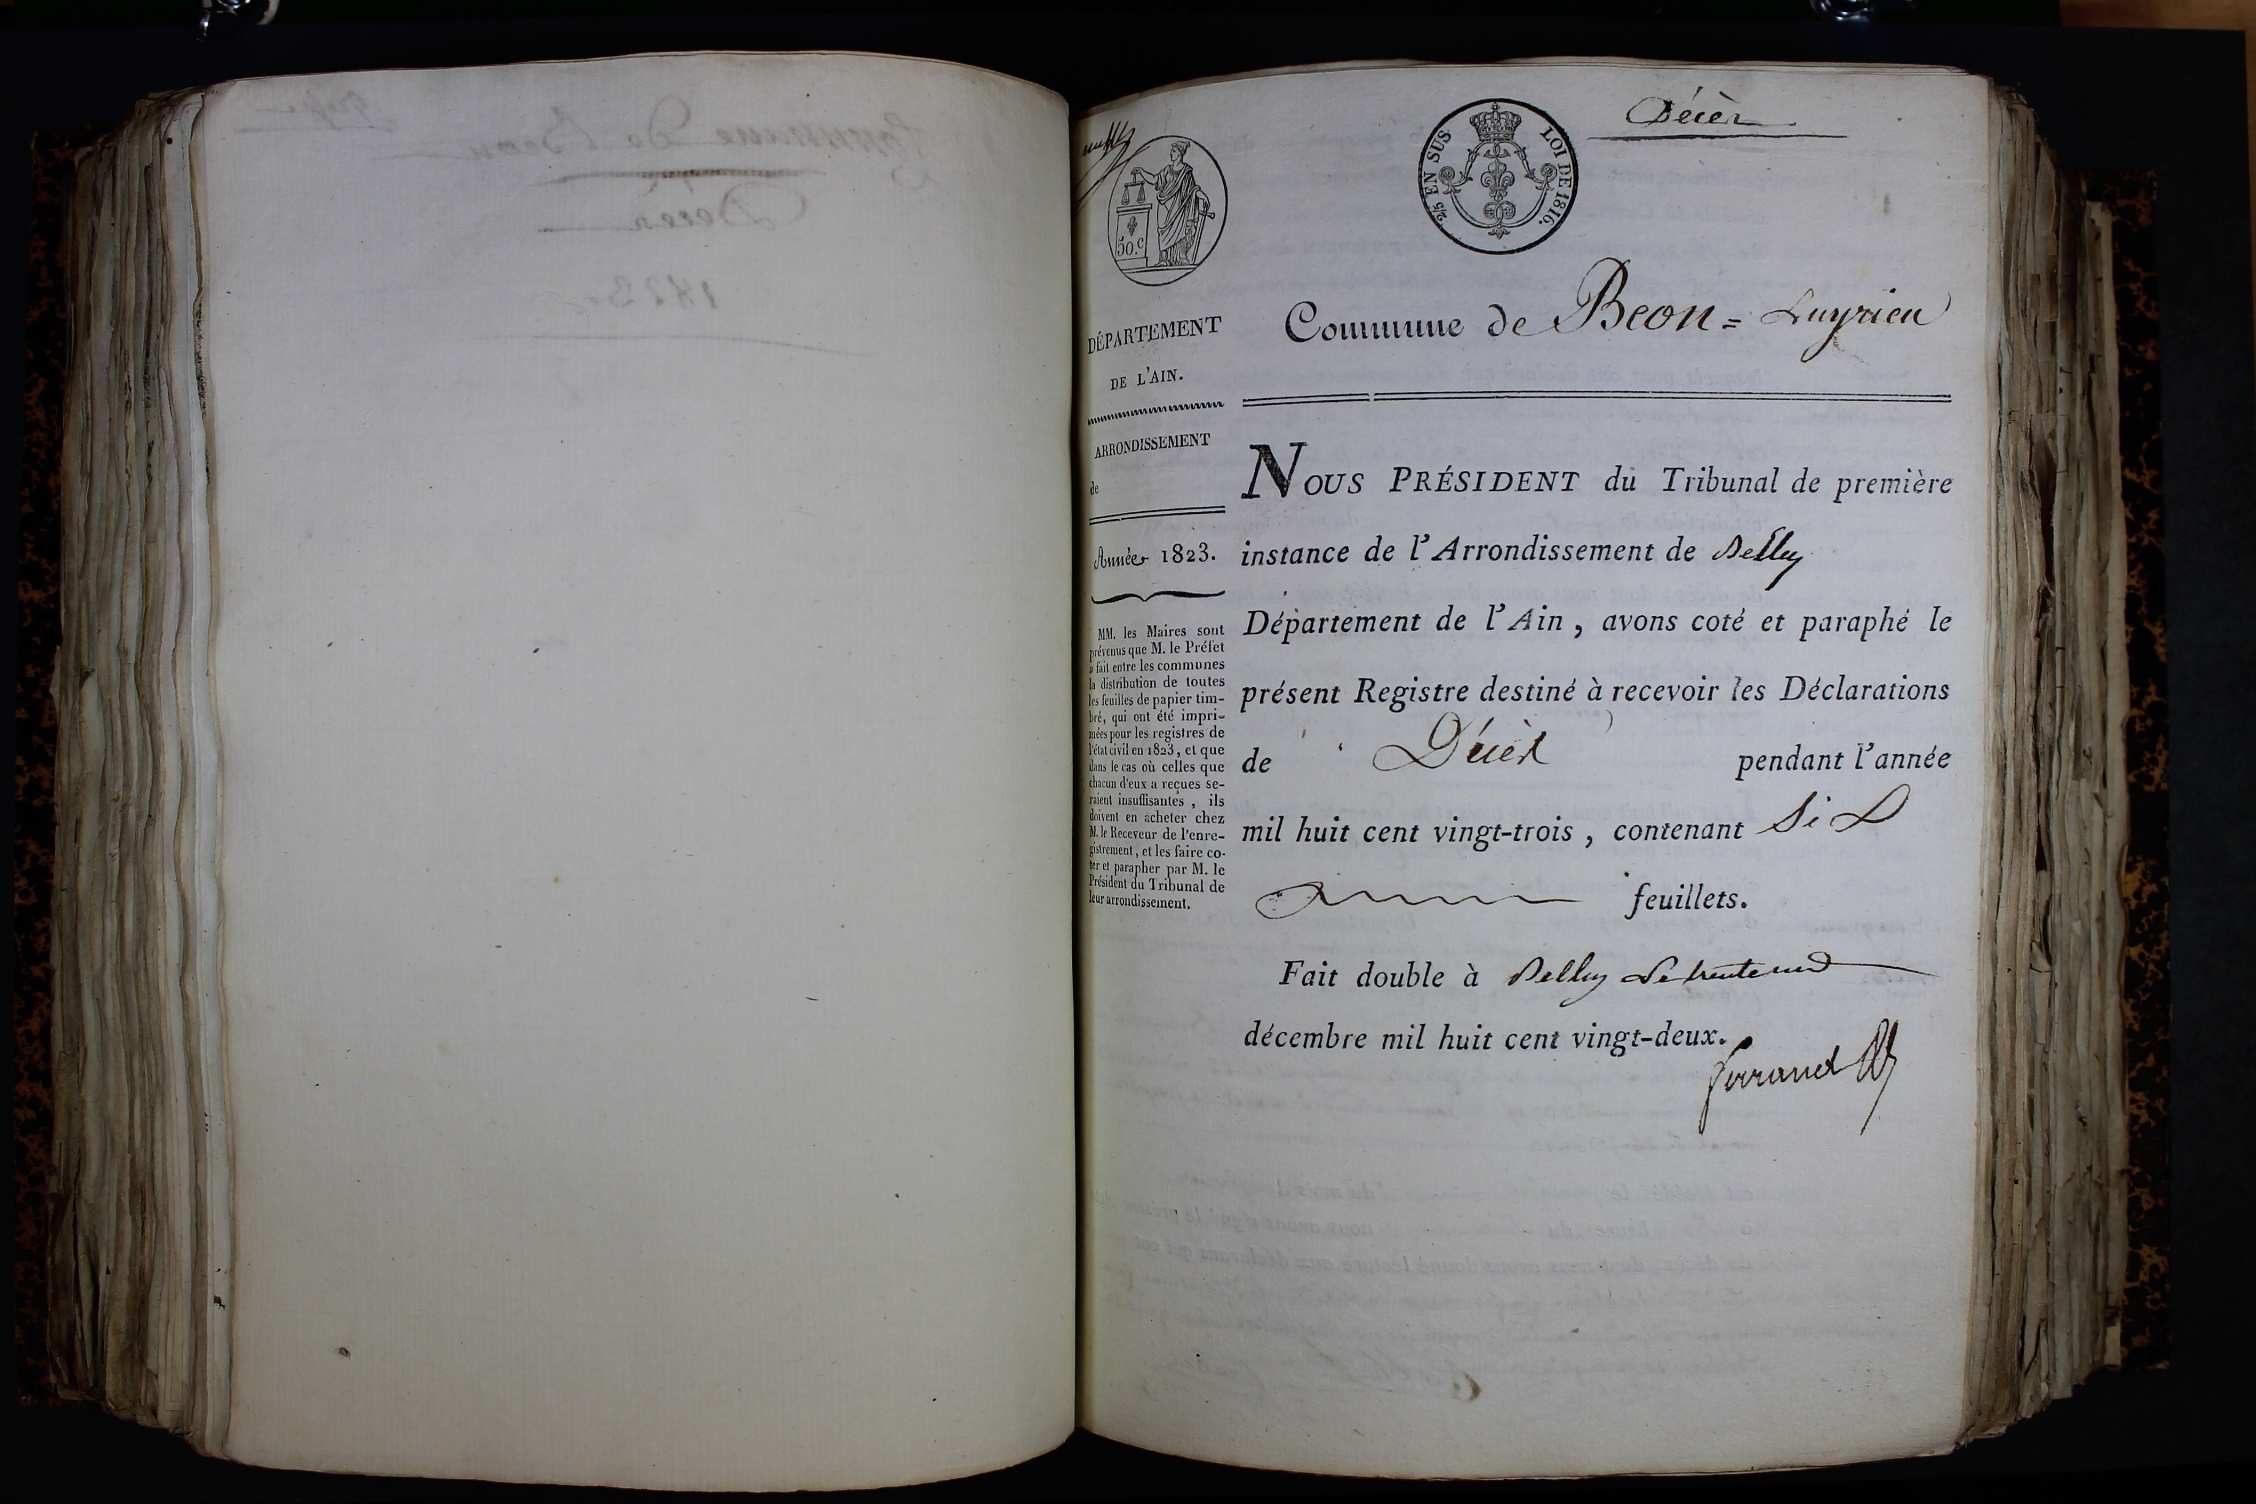 Décès
2/5 EN SUS
LOI DE 1816.
50.c
Commune de Beon = Luyrieu
DÉPARTEMENT
DE L'AIN.
ARRONDISSEMENT
de
Année 1823.
MM. les Maires sont
prévenus que M. le Préfet
a fait entre les communes
la distribution de toutes
les feuilles de papier tim-
bré, qui ont été impri-
mées pour les registres de
l'état civil en 1823, et que
dans le cas où celles que
chacun d'eux a reçues se-
raient insuffisantes, ils
doivent en acheter chez
M. le Receveur de l'enre-
gistrement, et les faire co-
ter et parapher par M. le
Président du Tribunal de
leur arrondissement.
NOUS PRÉSIDENT du Tribunal de première
instance de l'Arrondissement de Belley
Département de l'Ain, avons coté et paraphé le
présent Registre destiné à recevoir les Déclarations
de Décès pendant l'année
mil huit cent vingt-trois, contenant Six
feuillets.
Fait double à Belley Le trente un
décembre mil huit cent vingt-deux.